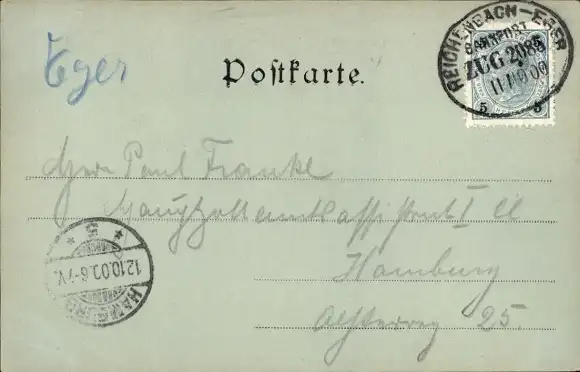 Eger
Postkarte.
REICHENBACH-EGER
BAHNPOST
ZUG 2085
11 10 00
5 5
Herrn Paul Franke
Hauptzollamtsassistent I Cl
Hamburg
Alsterweg 25.
HAMBURG
12.10.00.6-7V.
5